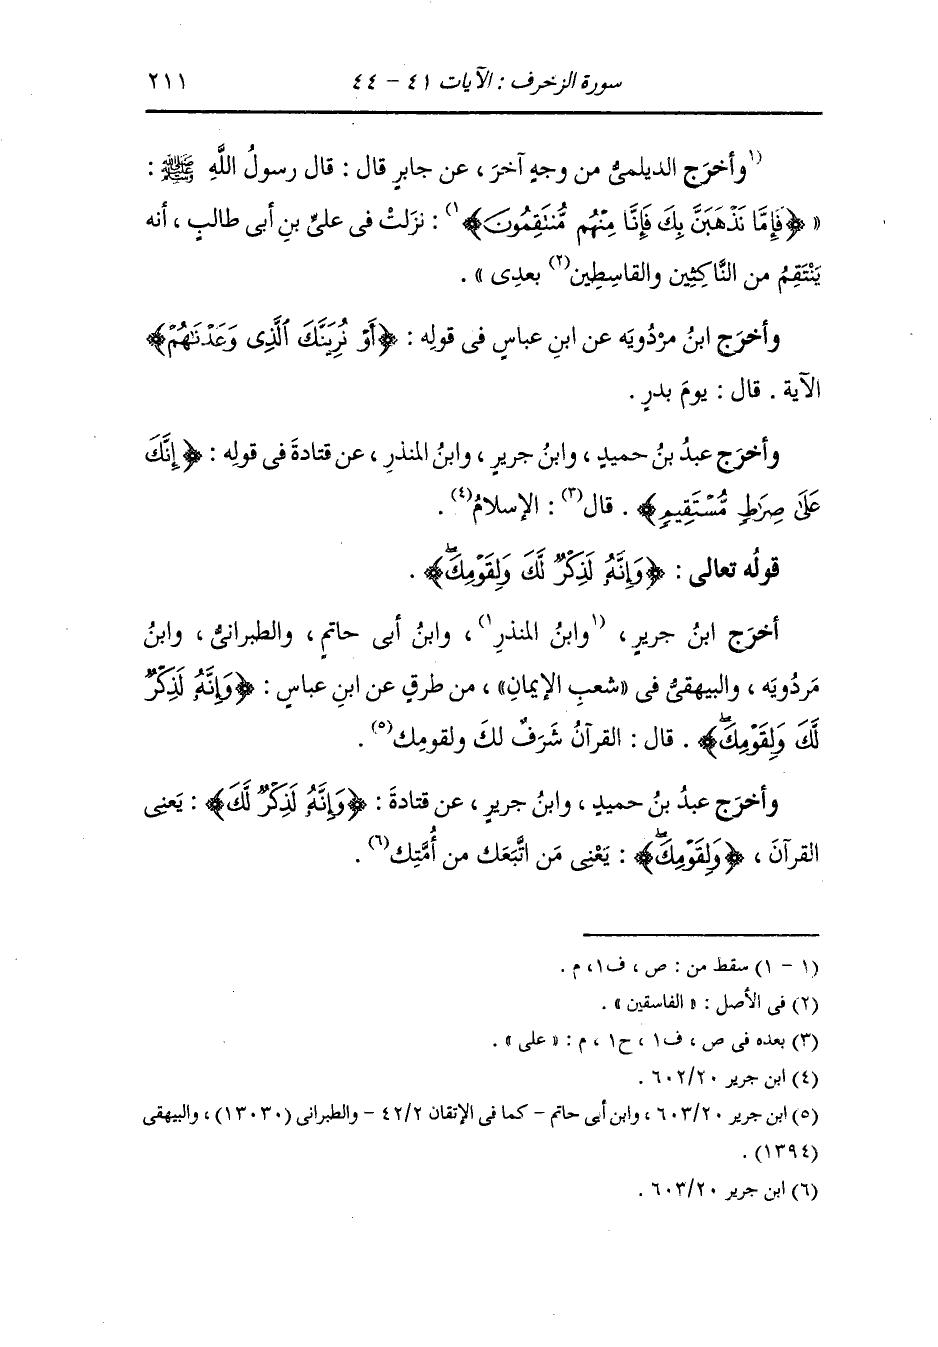 سورة الزخرف : الآيات ٤١ - ٤٤ ٢١١
(١وأخرَج الديلمىُّ من وجهٍ آخرَ ، عن جابرٍ قال : قال رسولُ اللَّهِ ﷺ :
« ﴿فَإِمَّا نَذْهَبَنَّ بِكَ فَإِنَّا مِنْهُم مُّنتَقِمُونَ﴾١) : نزَلتْ فى علىِّ بنِ أبى طالبٍ ، أنه
يَنْتَقِمُ من النَّاكِثِين والقاسِطِين(٢) بعدِى » .
وأخرَج ابنُ مرْدُويَه عن ابنِ عباسٍ فى قولِه : ﴿أَوْ نُرِيَنَّكَ ٱلَّذِى وَعَدْنَٰهُمْ﴾
الآية . قال : يومَ بدرٍ .
وأخرَج عبدُ بنُ حميدٍ ، وابنُ جريرٍ ، وابنُ المنذرِ ، عن قتادةَ فى قولِه : ﴿إِنَّكَ
عَلَىٰ صِرَٰطٍ مُّسْتَقِيمٍ﴾ . قال(٣) : الإسلامُ(٤) .
قولُه تعالى : ﴿وَإِنَّهُۥ لَذِكْرٌ لَّكَ وَلِقَوْمِكَۖ﴾ .
أخرَج ابنُ جريرٍ ، (١وابنُ المنذرِ١) ، وابنُ أبى حاتمٍ ، والطبرانىُّ ، وابنُ
مَردُويَه ، والبيهقىُّ فى «شعبِ الإيمانِ» ، من طرقٍ عن ابنِ عباسٍ : ﴿وَإِنَّهُۥ لَذِكْرٌ
لَّكَ وَلِقَوْمِكَۖ﴾ . قال : القرآنُ شَرَفٌ لكَ ولقومِك(٥) .
وأخرَج عبدُ بنُ حميدٍ ، وابنُ جريرٍ ، عن قتادةَ : ﴿وَإِنَّهُۥ لَذِكْرٌ لَّكَ﴾ : يَعنِى
القرآنَ ، ﴿وَلِقَوْمِكَۖ﴾ : يَعْنِى مَن اتَّبَعَك من أُمَّتِك(٦) .
(١ - ١) سقط من : ص ، ف١، م .
(٢) فى الأصل : « الفاسقين » .
(٣) بعده فى ص ، ف١ ، ح١ ، م : « على » .
(٤) ابن جرير ٦٠٢/٢٠ .
(٥) ابن جرير ٦٠٣/٢٠ ، وابن أبى حاتم - كما فى الإتقان ٤٢/٢ - والطبرانى (١٣٠٣٠) ، والبيهقى
(١٣٩٤) .
(٦) ابن جرير ٦٠٣/٢٠ .